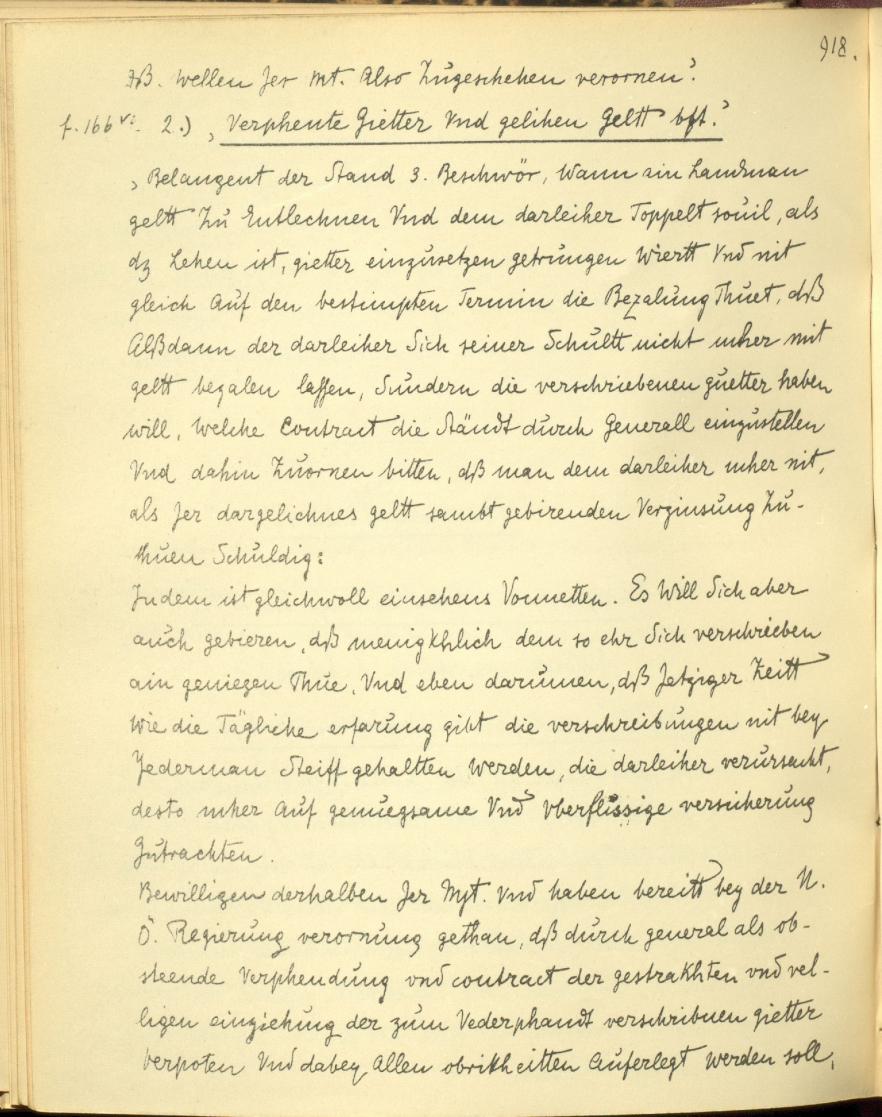 918.
dß. wellen Jer Mt. Also Zugeschehen verornen?
f. 166 v: 2.) „Verphente Gietter Vnd gelihen Geltt bft.“
„Belangent der Stand 3. Beschwör, Wann ain Landman
geltt Zu Entlechnen Vnd dem darleiher Toppelt souil, als
dz Lehen ist, gietter einzusetzen getrungen Wiertt Vnd nit
gleich Auf den bestimpten Termin die Bezalung Thuet, dß
Alßdann der darleiher Sich seiner Schultt nicht mher mit
geltt bezalen lassen, Sundern die verschriebenen guetter haben
will, Welche Contract die Ständt durch Generall einzustellen
Vnd dahin Zuornen bitten, dß man dem darleiher mher nit,
als Jer dargelichnes geltt sambt gebirenden Verzinsung Zu-
thuen Schuldig:
Indem ist gleichwoll einsehens Vonnetten. Es Will Sich aber
auch gebieren, dß menigkhlich dem so ehr Sich verschrieben
ain geniegen Thue, Vnd eben darumen, dß Jetziger Zeitt
wie die Tägliche erfarung gibt die verschreibungen nit bey
Jederman Steiff gehaltten Werden, die darleiher verursacht,
desto mher Auf genuegsame Vnd Vberflissige versicherung
Zutrachten.
Bewilligen derhalben Jer Mjt. Vnd haben bereitt bey der N.
Ö. Regierung verornung gethan, dß durch general als ob-
steende Verphendung vnd contract der gestrakhten vnd vel-
ligen einziehung der zum Vederphandt verschribnen gietter
Verpoten Vnd dabey Allen obrikheitten Auferlegt werden soll,